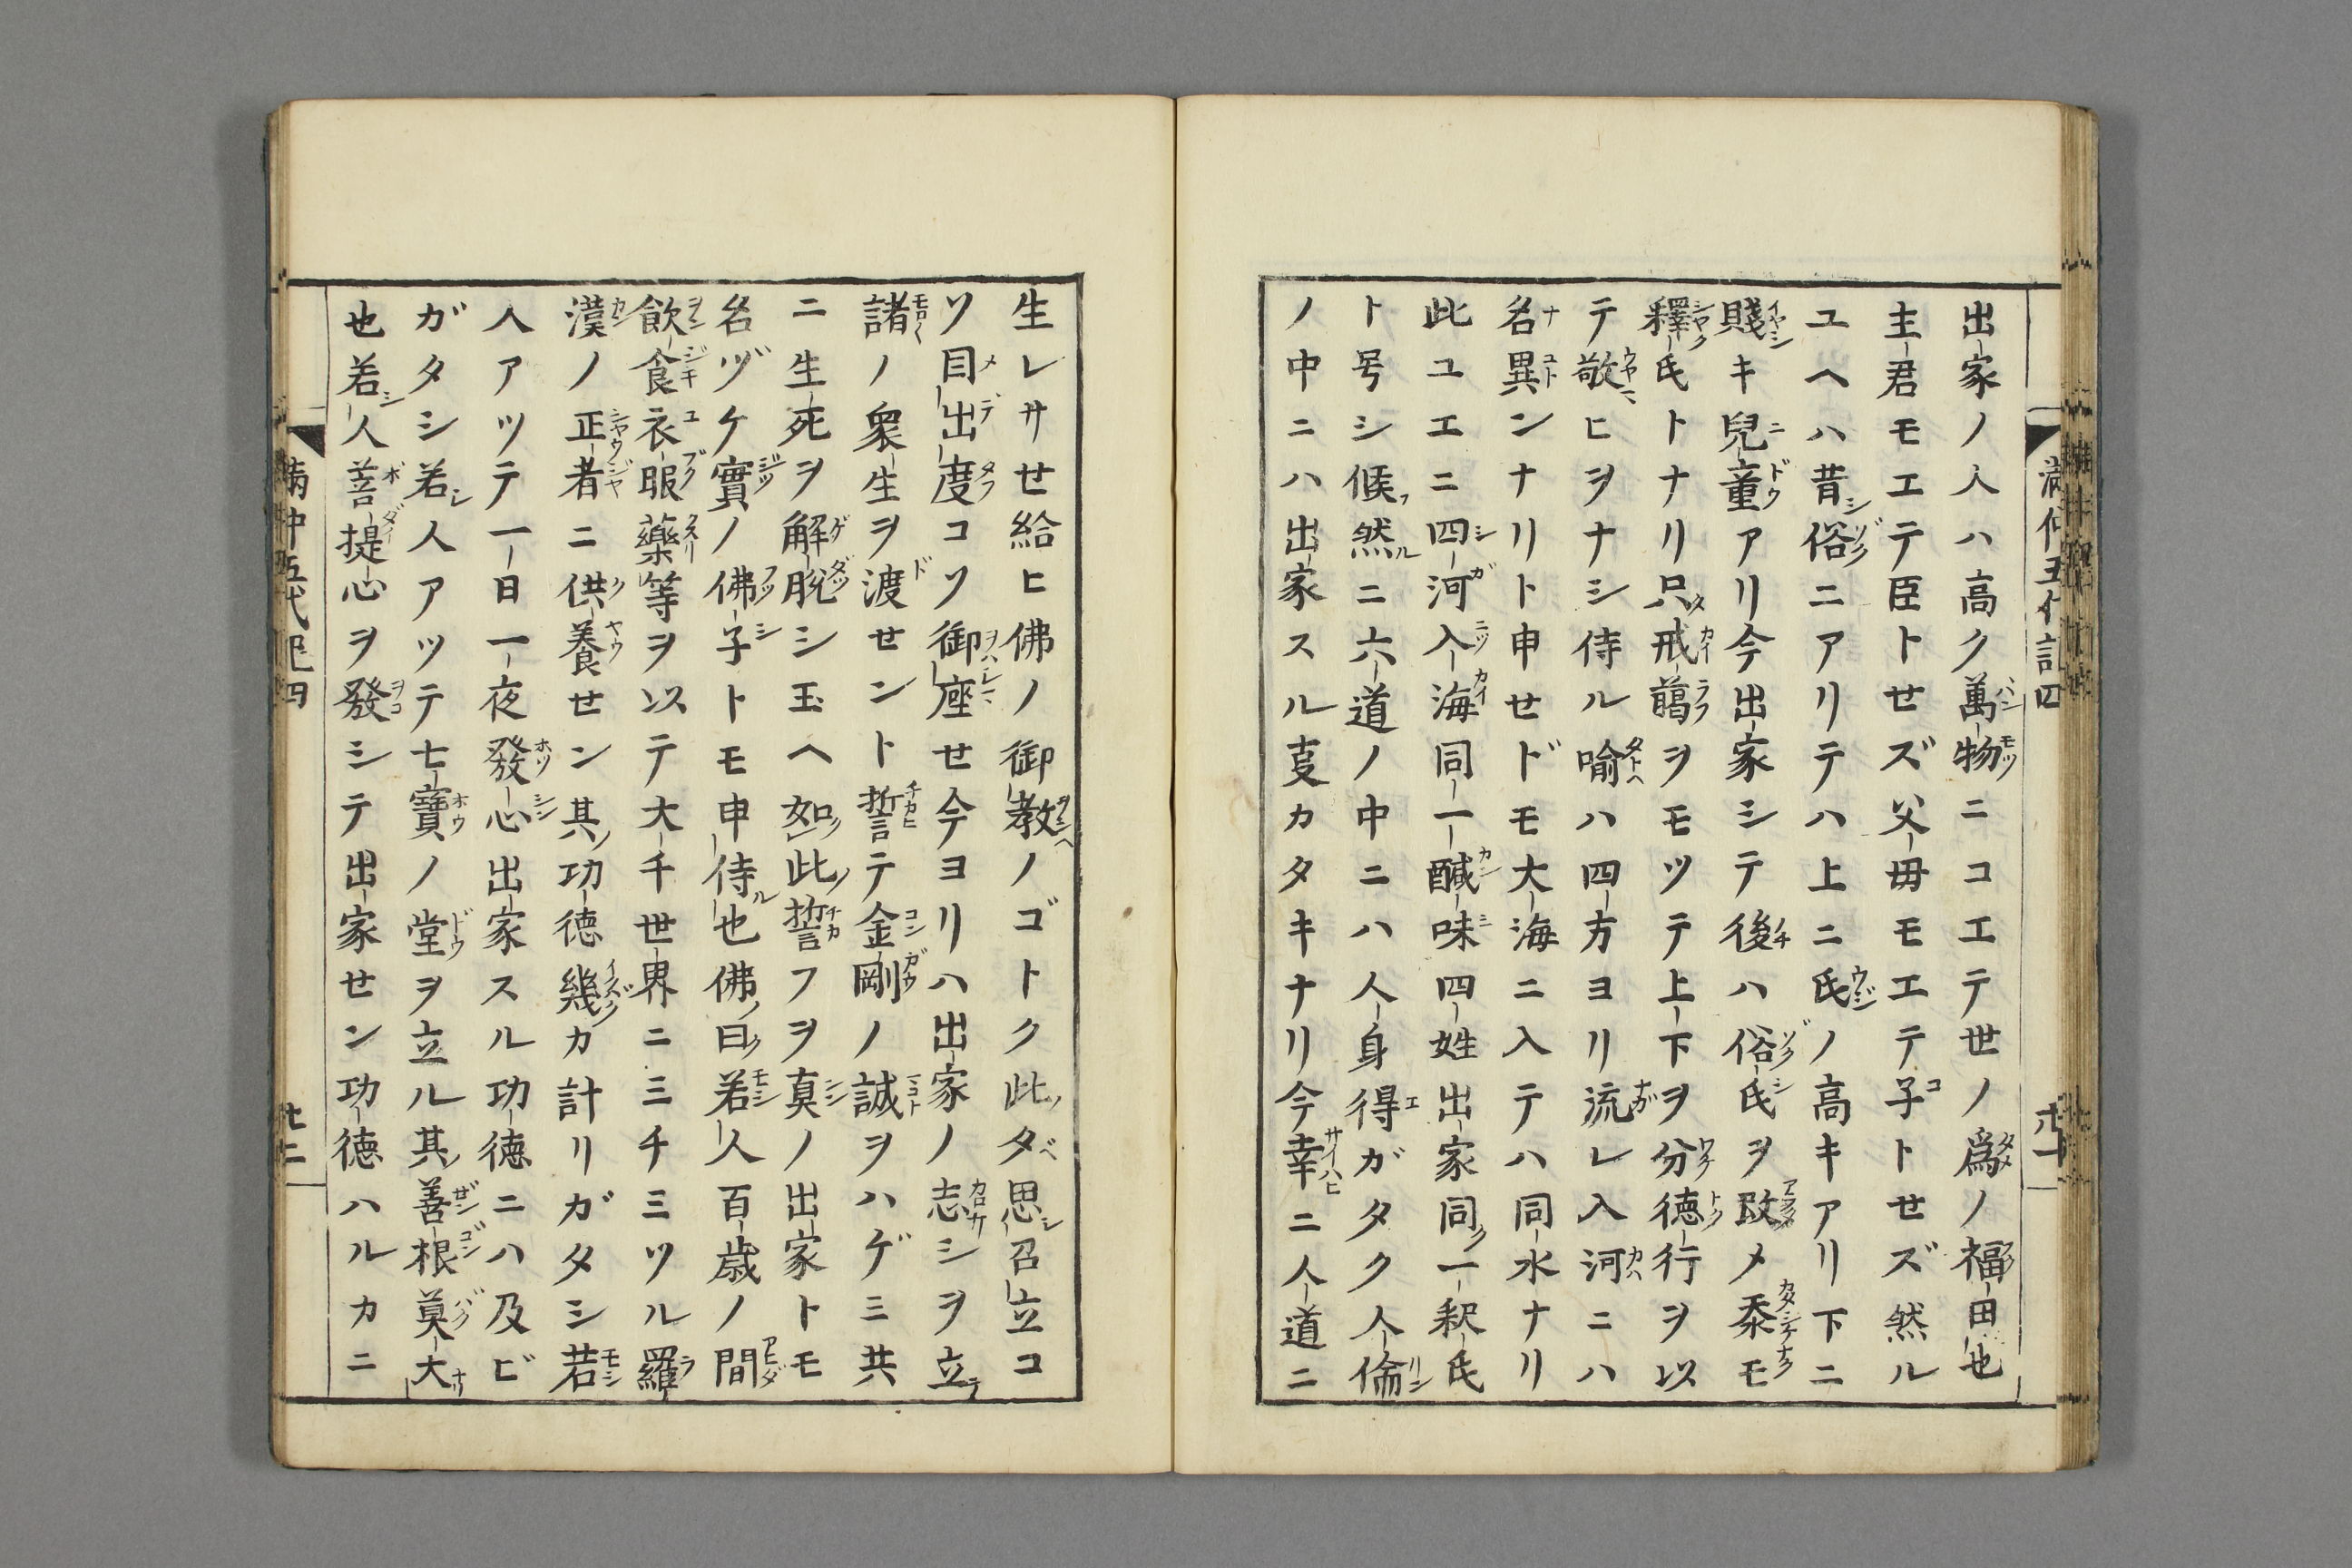 出家ノ人ハ高ク萬物ニコエテ世ノ爲ノ福田也
主君モエテ臣トセズ父母モエテ子トセズ然ル
ユヘハ昔シ俗ニアリテハ上ニ氏ノ高キアリ下ニ
賤キ兒童アリ今出家シテ後ハ俗氏ヲ改メ忝モ
釋氏トナリ只戒﨟ヲモツテ上下ヲ分徳行ヲ以
テ敬ヒヲナシ侍ル喻ハ四方ヨリ流レ入河ニハ
名異ンナリト申せドモ大海ニ入テハ同水ナリ
此ユエニ四河入海同一醎味四姓出家同一釈氏
ト号シ候然ニ六道ノ中ニハ人身得ガタク人倫
ノ中ニハ出家スル叓カタキナリ今幸ニ人道ニ
生レサせ給ヒ佛ノ御教ノゴトク此タ思召立コ
ソ目出度コソ御座せ今ヨリハ出家ノ志シヲ立
諸ノ衆生ヲ渡せント誓テ金剛ノ誠ヲハゲミ共
ニ生死ヲ解脱シ玉ヘ如此誓フヲ真ノ出家トモ
名ヅケ實ノ佛子トモ申侍也佛曰若人百歳ノ間
飲食衣服藥等ヲ以テ大千世界ニ三チミツル羅
漢ノ正者ニ供養せン其功徳幾カ計リガタシ若
人アツテ一日一夜發心出家スル功徳ニハ及ビ
ガタシ若人アツテ七寶ノ堂ヲ立ル其善根莫大
也若人菩提心ヲ發シテ出家せン功徳ハルカニ